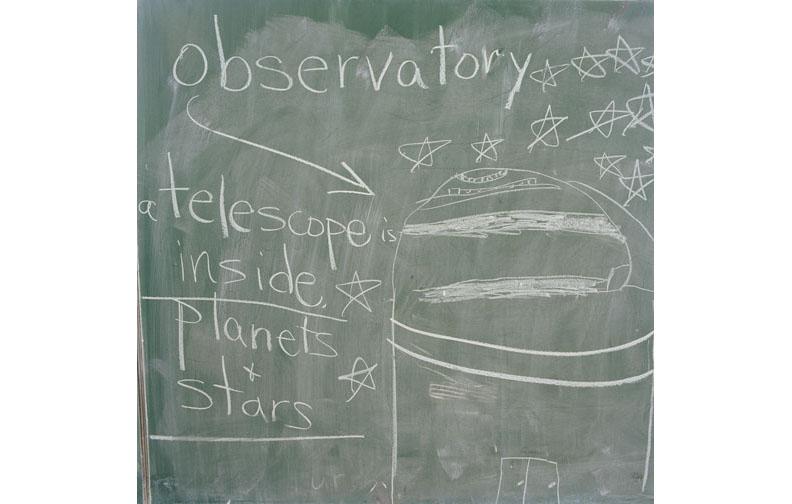 observatory
a telescope is
inside.
planets
+
stars